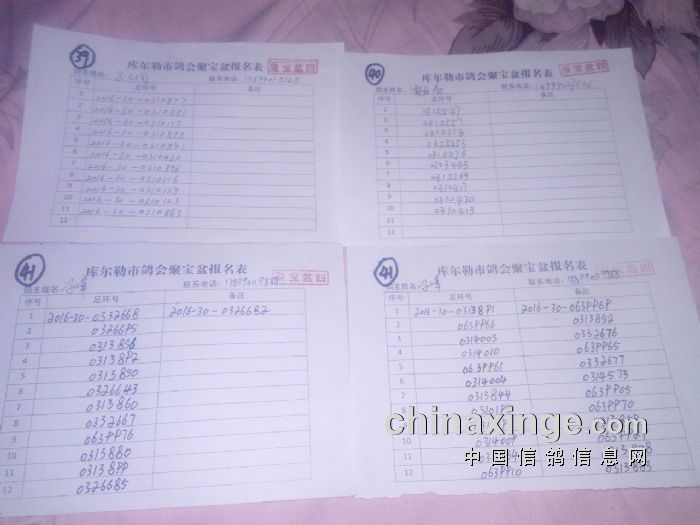 39
库尔勒市鸽会聚宝盆报名表 聚宝盆四
鸽主姓名: 联系电话:
序号 足环号 备注
1 2016-30-0310877
2 2016-30-0310881
3 2016-30-0310115
4 2016-30-0310878
5 2016-30-0310841
6 2016-30-0310430
7 2016-30-0310896
8 2016-30-0310116
9 2016-30-0310129
10 2016-30-0310123
11 2016-30-0310865
12
40
库尔勒市鸽会聚宝盆报名表 聚宝盆四
鸽主姓名: 联系电话:
序号 足环号 备注
1 0315547
2 0315557
3 0315558
4 0655553
5 0315576
6 0303443
7 0315589
8 0310417
9 0310420
10 0310413
11
12
41
库尔勒市鸽会聚宝盆报名表 聚宝盆四
鸽主姓名: 联系电话: 13899009388
序号 足环号 备注
1 2016-30-0332668 2016-30-0326682
2 0326695
3 0313858
4 0313892
5 0313850
6 0326643
7 0313860
8 0332667
9 0639976
10 0313880
11 0313899
12 0326685
41
库尔勒市鸽会聚宝盆报名表 聚宝盆四
鸽主姓名: 联系电话: 13899009388
序号 足环号 备注
1 2016-30-0313891 2016-30-0639969
2 0639966 0313852
3 0314003 0332676
4 0314010 0639965
5 0639961 0332677
6 0314004 0314573
7 0313844 0639905
8 0639970
10 0314009
12 0313885
chinaxinge.com
中国信鸽信息网